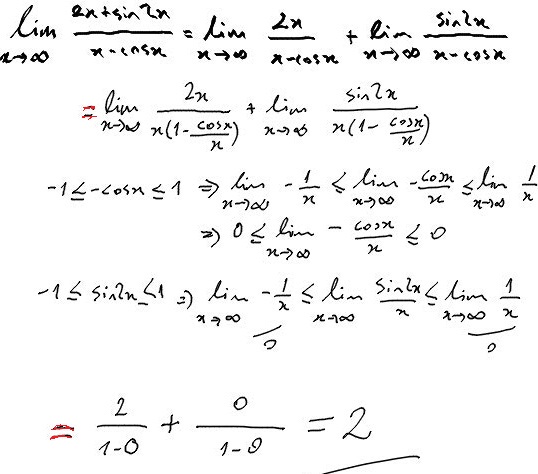 lim x→∞ (2x+sin2x)/(x-cosx) = lim x→∞ 2x/(x-cosx) + lim x→∞ sin2x/(x-cosx)
= lim x→∞ 2x/(x(1-cosx/x)) + lim x→∞ sin2x/(x(1-cosx/x))
-1≤-cosx≤1 ⇒ lim x→∞ -1/x ≤ lim x→∞ -cosx/x ≤ lim x→∞ 1/x
⇒ 0 ≤ lim x→∞ -cosx/x ≤ 0
-1≤ sin2x≤1 ⇒ lim x→∞ -1/x ≤ lim x→∞ sin2x/x ≤ lim x→∞ 1/x
0 0
= 2/(1-0) + 0/(1-0) = 2